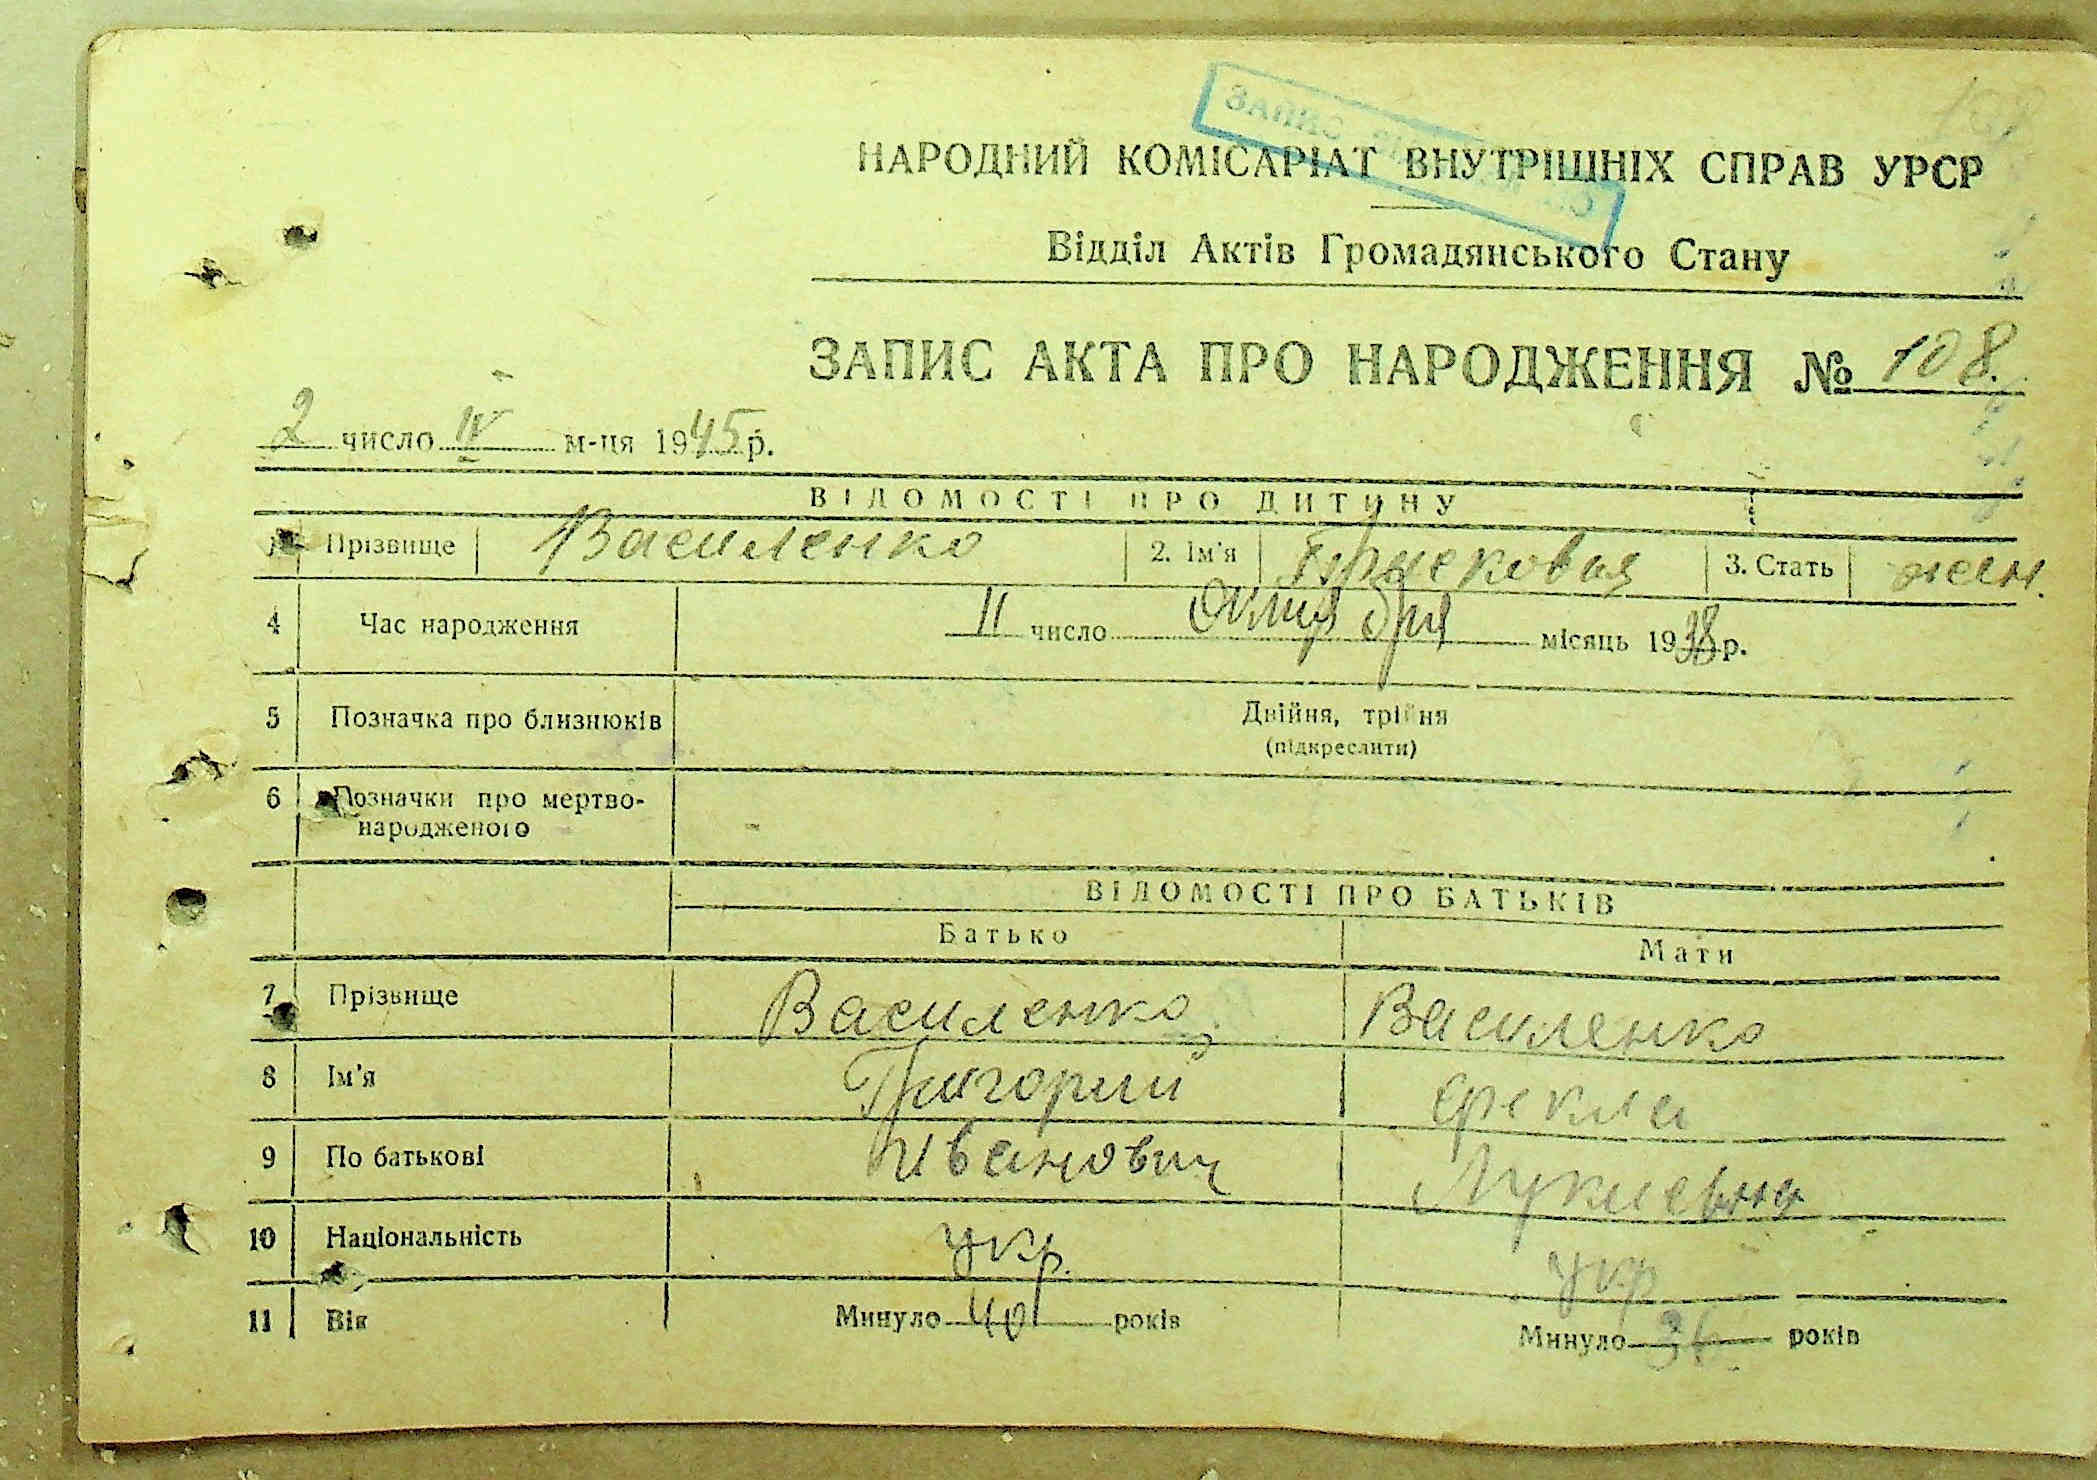 ЗАПИС
НАРОДНИЙ КОМІСАРІАТ ВНУТРІШНІХ СПРАВ УРСР
Відділ Актів Громадянського Стану
ЗАПИС АКТА ПРО НАРОДЖЕННЯ № 108
2 число IV м-ця 1945 р.
ВІДОМОСТІ ПРО ДИТИНУ
Прізвище Василенко 2. Ім'я 3. Стать жен.
4 Час народження 11 число октября місяць 1938 р.
5 Позначка про близнюків Двійня, трійня
(підкреслити)
6 Позначки про мертво-
народженого
ВІДОМОСТІ ПРО БАТЬКІВ
Батько Мати
7 Прізвище Василенко Василенко
8 Ім'я Григорий Фекла
9 По батькові Иванович Лукиевна
10 Національність укр. укр
11 Вік Минуло 40 років Минуло 36 років